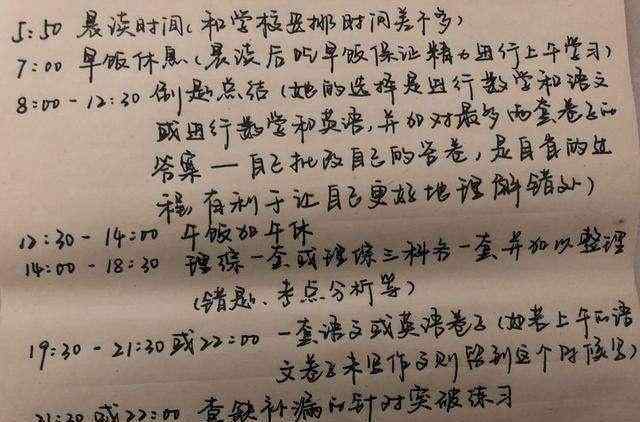 5:50 晨读时间(和学校安排时间差不多)
7:00 早饭休息(晨读后吃早饭保证精力进行上午学习)
8:00-12:30 刷题总结(她的选择是进行数学和语文
或进行数学和英语,并加对最多两套卷子的
答案——自己批改自己的答卷,是自省的过
程,有利于让自己更好地理解错处)
12:30-14:00 午饭加午休
14:00-18:30 理综一套或理综三科各一套并加以整理
(错题、考点分析等)
19:30-21:30或22:00 一套语文或英语卷子(如果上午的语
文卷子未写作文则留到这个时候写)
21:30或22:00 查缺补漏的针对突破练习